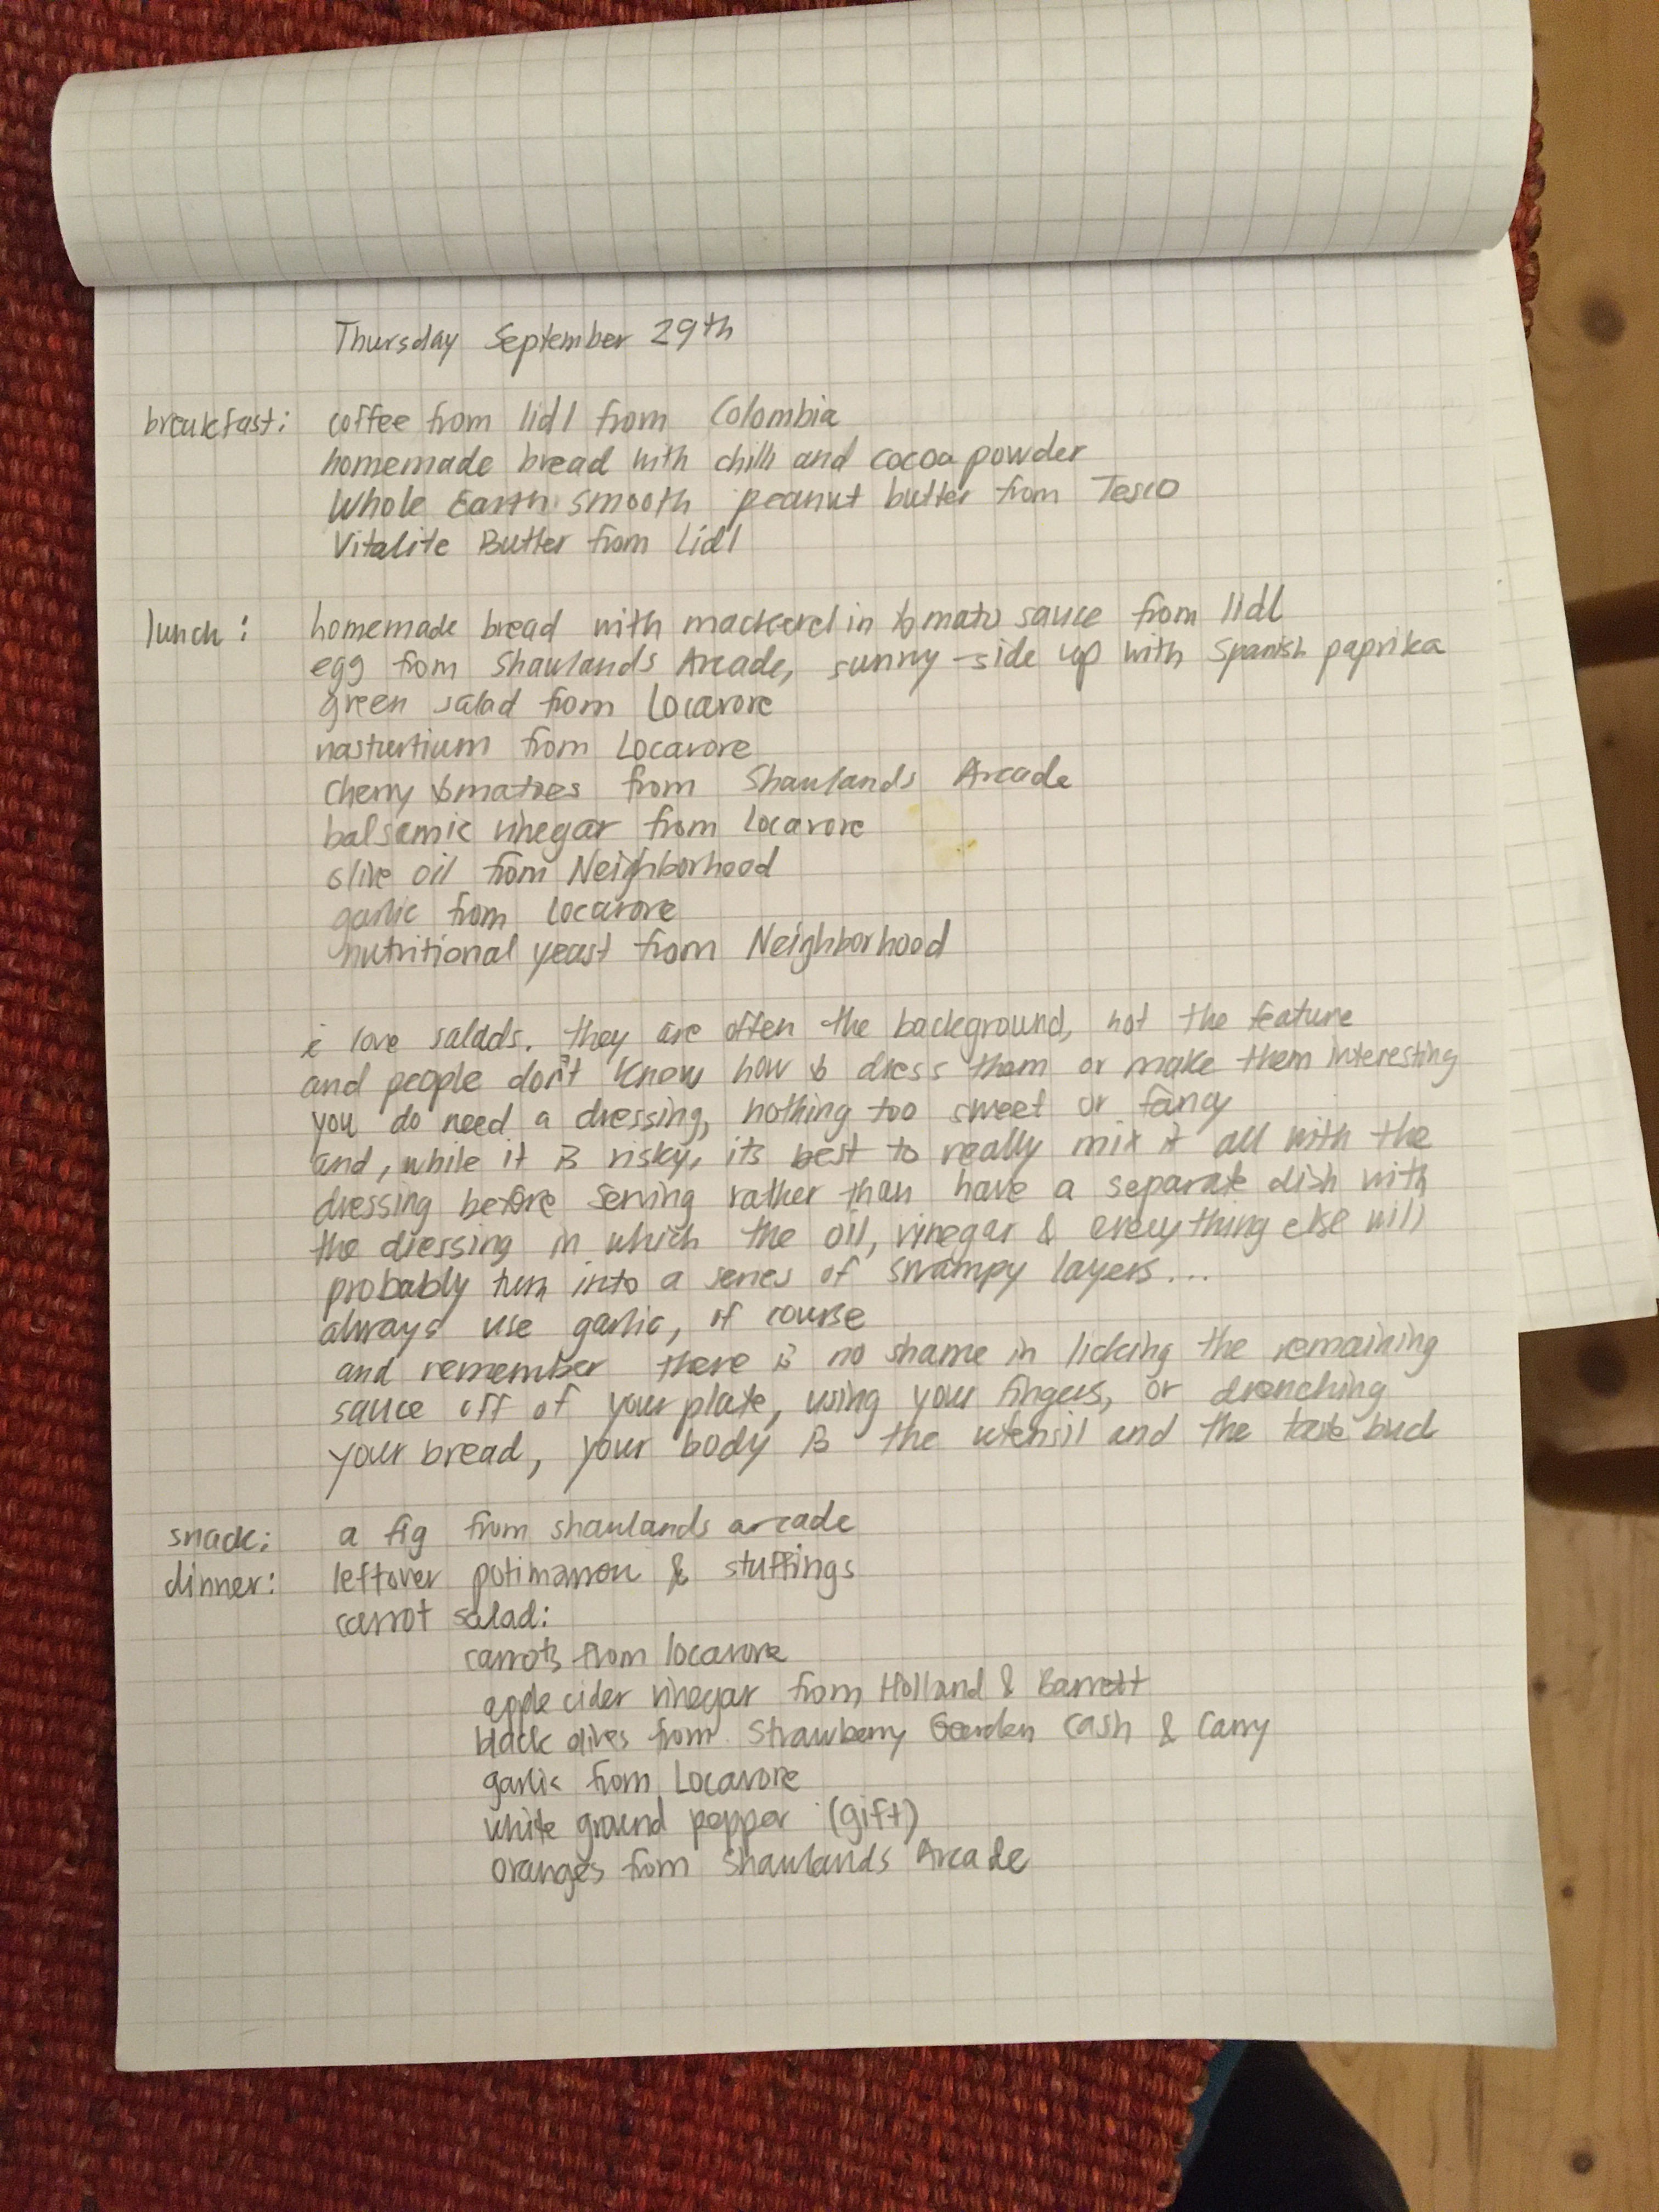 Thursday September 29th
breakfast: coffee from lidl from Colombia
homemade bread with chilli and cocoa powder
Whole Earth smooth peanut butter from Tesco
Vitalite Butter from Lidl
lunch: homemade bread with mackerel in tomato sauce from lidl
egg from Shawlands Arcade, sunny-side up with Spanish paprika
green salad from Locavore
nasturtium from Locavore
cherry tomatoes from Shawlands Arcade
balsamic vinegar from locavore
olive oil from Neighborhood
garlic from locavore
nutritional yeast from Neighborhood
i love salads. they are often the background, not the feature
and people don't know how to dress them or make them interesting
you do need a dressing, nothing too sweet or fancy
and, while it is risky, its best to really mix it all with the
dressing before serving rather than have a separate dish with
the dressing in which the oil, vinegar & everything else will
probably turn into a series of swampy layers...
always use garlic, of course
and remember there is no shame in licking the remaining
sauce off of your plate, using your fingers, or drenching
your bread, your body is the utensil and the taste bud
snack: a fig from shawlands arcade
dinner: leftover potimarron & stuffings
carrot salad:
carrots from locavore
apple cider vinegar from Holland & Barrett
black olives from Strawberry Garden Cash & Carry
garlic from Locavore
white ground pepper (gift)
oranges from Shawlands Arcade